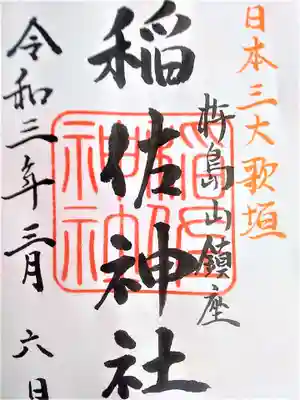 日本三大歌垣
杵島山鎮座
稲佐神社
令和三年三月六日
稲佐神社